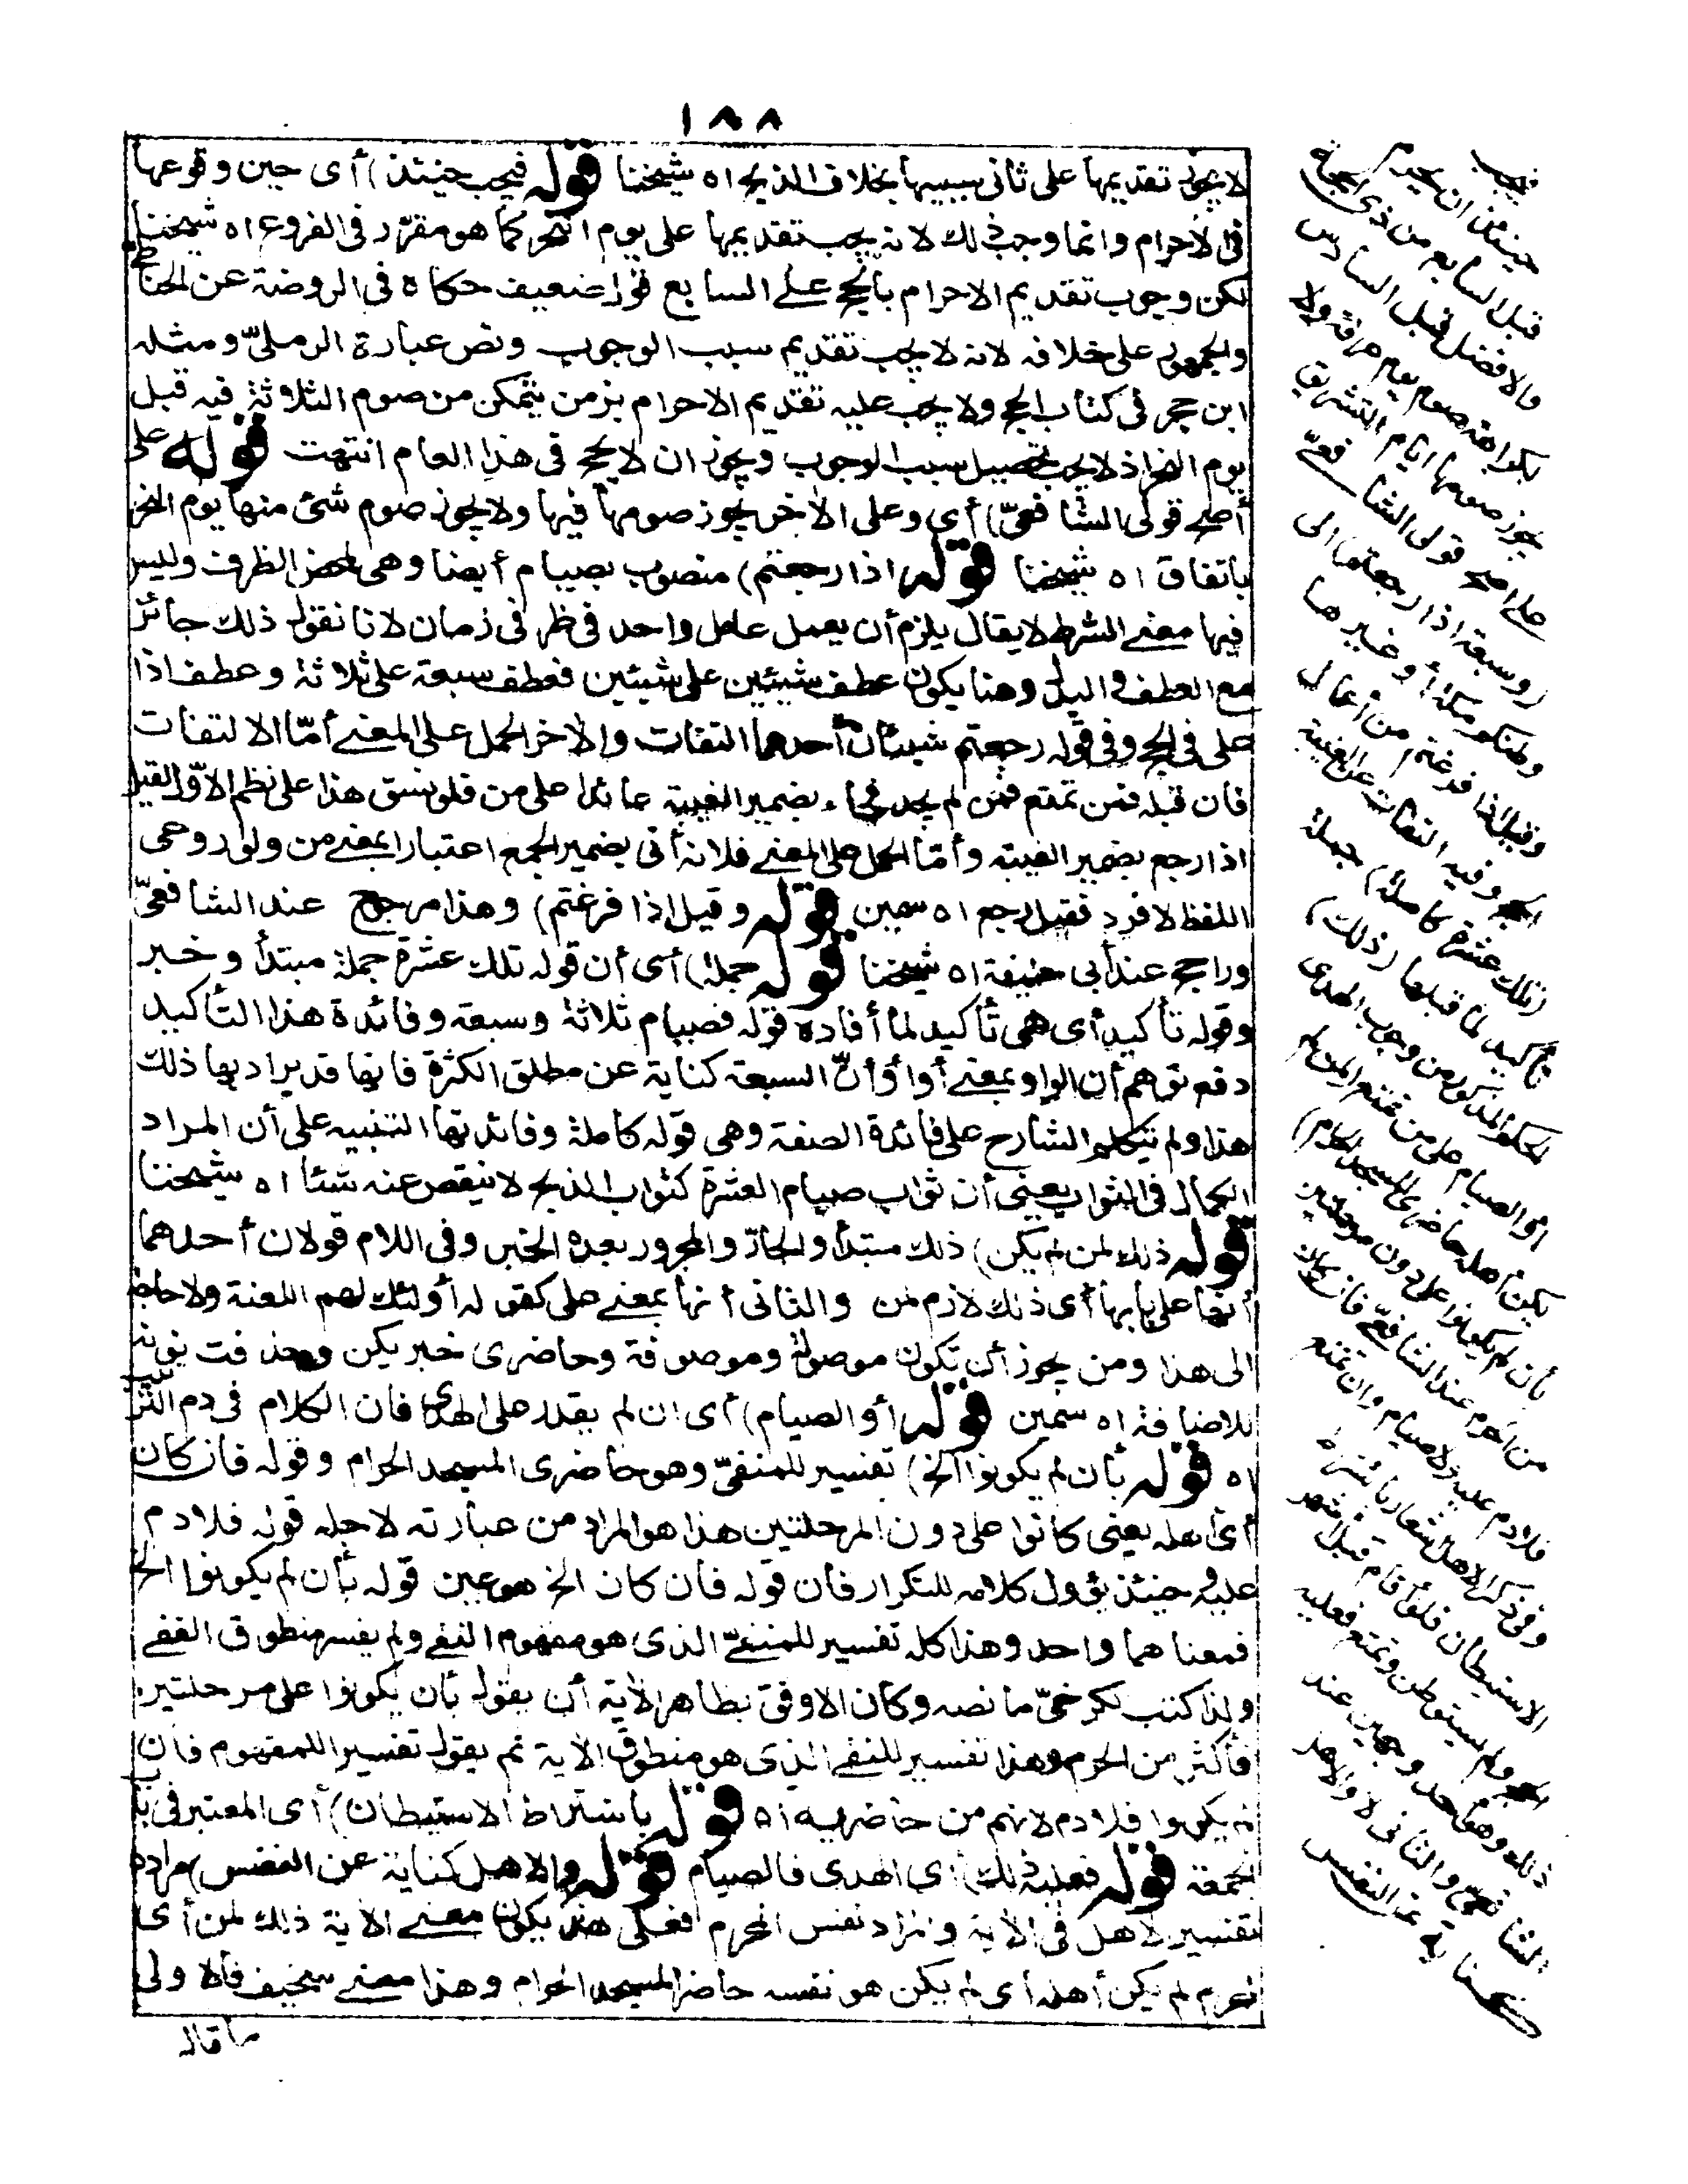 ١٨٨
لا يجوز تقديمها على ثانى سببيها بخلاف الذبح اه شيخنا قوله فيجب حينئذ) أى حين وقوعها
فى الاحرام وانما وجب ذلك لانه يجب تقديمها على يوم النحر كما هو مقرّر فى الفروع اه شيخنا
لكن وجوب تقديم الاحرام بالحج على السابع قول ضعيف حكاه فى الروضة عن الحناطى
والجمهور على خلافه لانه لا يجب تقديم سبب الوجوب ونص عبارة الرملىّ ومثله
ابن حجر فى كتاب الحج ولا يجب عليه تقديم الاحرام بزمن يتمكن من صوم الثلاثة فيه قبل
يوم النحر اذ لا يجب تحصيل سبب الوجوب ويجوز ان لا يحج فى هذا العام انتهت قوله على
أصح قولى الشافعىّ) أى وعلى الآخر يجوز صومها فيها ولا يجوز صوم شئ منها يوم النحر
باتفاق اه شيخنا قوله اذا رجعتم) منصوب بصيام أيضا وهى لمحض الظرف وليس
فيها معنى الشرط لا يقال يلزم أن يعمل عامل واحد فى ظرفى زمان لانا نقول ذلك جائز
مع العطف والبدل وهنا يكون عطف شيئين على شيئين فعطف سبعة على ثلاثة وعطف اذا
على فى الحج وفى قوله رجعتم شيئان أحدهما التفات والآخر الحمل على المعنى أمّا الالتفات
فان قبله فمن تمتع فمن لم يجد فجاء بضمير الغيبة عائدا على من فلو نسق هذا على نظم الاوّل لقيل
اذا رجع بضمير الغيبة وأمّا الحمل على المعنى فلانه أتى بضمير الجمع اعتبارا بمعنى من ولو روعى
اللفظ لافرد فقيل رجع اه سمين قوله وقيل اذا فرغتم) وهذا مرجوح عند الشافعىّ
وراجح عند أبى حنيفة اه شيخنا قوله جملة) أى أن قوله تلك عشرة جملة مبتدأ وخبر
وقوله تأكيد أى هى تأكيد لما أفاده قوله فصيام ثلاثة وسبعة وفائدة هذا التأكيد
دفع توهم أن الواو بمعنى أو أو أنّ السبعة كناية عن مطلق الكثرة فانها قد يراد بها ذلك
هذا ولم يتكلم الشارح على فائدة الصفة وهى قوله كاملة وفائدتها التنبيه على أن المراد
الكمال فى الثواب يعنى أن ثواب صيام العشرة كثواب الذبح لا ينقص عنه شئا اه شيخنا
قوله ذلك لمن لم يكن) ذلك مبتدأ والجارّ والمجرور بعده الخبر وفى اللام قولان أحدهما
أنها على بابها أى ذلك لازم لمن والثانى أنها بمعنى على كقوله أولئك لهم اللعنة ولا حاجة
الى هذا ومن يجوز أن تكون موصولة وموصوفة وحاضرى خبر يكن وحذفت نونه
للاضافة اه سمين قوله أو الصيام) أى ان لم يقدر على الهدى فان الكلام فى دم الترتيب
اه قوله بأن لم يكونوا الخ) تفسير للمنفىّ وهو حاضرى المسجد الحرام وقوله فان كان
أى أهله يعنى كانوا على دون المرحلتين هذا هو المراد من عبارته لاجل قوله فلا دم
عليه وحينئذ يؤول كلامه للتكرار فان قوله فان كان الخ هو عين قوله بأن لم يكونوا الخ
فمعناهما واحد وهذا كله تفسير للمنفىّ الذى هو مفهوم النفى ولم يفسر منطوق النفى
ولذا كتب كرخىّ ما نصه وكان الاوفق بظاهر الآية أن يقول بأن يكونوا على مرحلتين
فأكثر من الحرم وهذا تفسير للنفى الذى هو منطوق الآية ثم يقول تفسيرا للمفهوم فان
لم يكونوا فلا دم لانهم من حاضريه اه قوله باشتراط الاستيطان) أى المعتبر فى باب
الجمعة قوله فعليه ذلك) أى الهدى فالصيام قوله والاهل كناية عن النفس) مراده
تفسير لاهل فى الآية وانه اراد نفس المحرم فعلى هذا يكون معنى الآية ذلك لمن أى
لمحرم لم يكن أهله أى لم يكن هو نفسه حاضر المسجد الحرام وهذا معنى سخيف فالاولى
ما قاله
فيجب
حينئذ أن يحرم
قبل السابع من ذى الحجة
والافضل قبل السادس
لكراهة صوم يوم عرفة ولا
يجوز صومها ايام التشريق
على اصح قولى الشافعىّ
(وسبعة اذا رجعتم) الى
وطنكم مكة أو غيرها
وقيل اذا فرغتم من أعمال
الحج وفيه التفات عن الغيبة
(تلك عشرة كاملة) جملة
تأكيد لما قبلها (ذلك)
الحكم المذكور من وجوب الهدى
أو الصيام على من تمتع (لمن لم
يكن أهله حاضرى المسجد الحرام)
بأن لم يكونوا على دون مرحلتين
من الحرم عند الشافعىّ فان كان
فلا دم عليه ولا صيام وان تمتع
وفى ذكر الاهل اشعار باشتراط
الاستيطان فلو أقام قبل أشهر
الحج ولم يستوطن وتمتع فعليه
ذلك وهو أحد وجهين عند
الشافعىّ والثانى لا والاهل
كناية عن النفس